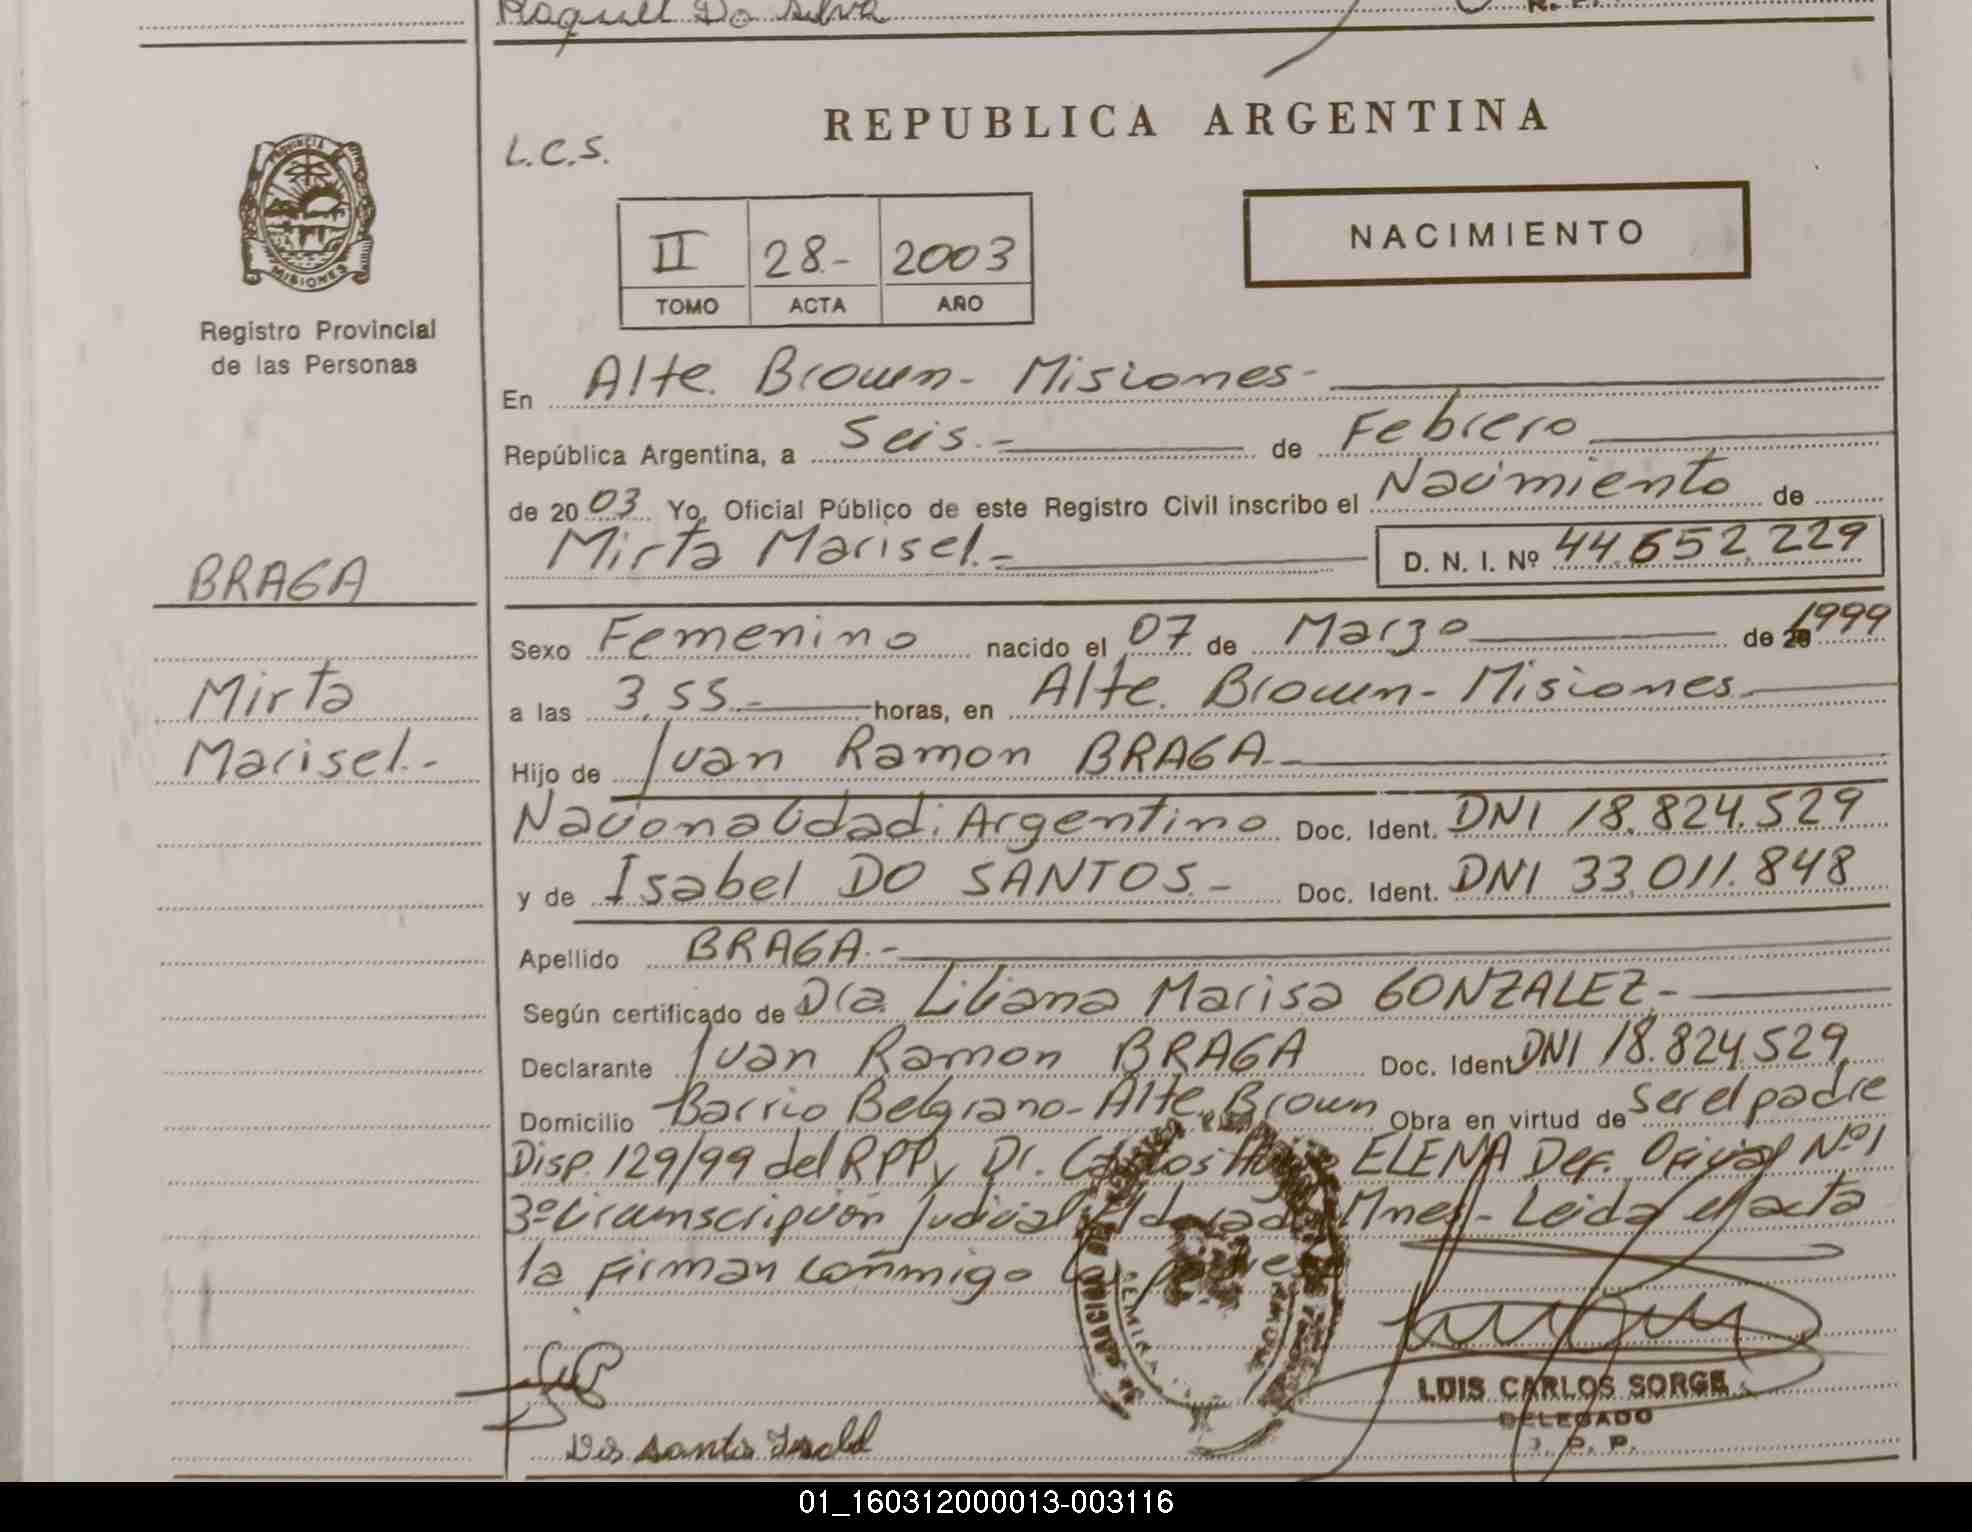 Raquel Do Silva
REPUBLICA ARGENTINA
L.C.S.
PROVINCIA
MISIONES
Registro Provincial
de las Personas
II 28.- 2003
TOMO ACTA AÑO
NACIMIENTO
En Alte. Brown - Misiones -
República Argentina, a Seis.- de Febrero
de 20 03 Yo, Oficial Público de este Registro Civil inscribo el Nacimiento de
Mirta Marisel.- D. N. I. Nº 44.652.229
BRAGA
Mirta
Marisel.-
Sexo Femenino nacido el 07 de Marzo de 20 1999
a las 3,55.- horas, en Alte. Brown - Misiones.
Hijo de Juan Ramon BRAGA.-
Nacionalidad: Argentino Doc. Ident. DNI 18.824.529
y de Isabel DO SANTOS.- Doc. Ident. DNI 33.011.848
Apellido BRAGA.-
Según certificado de Dra. Liliana Marisa GONZALEZ.-
Declarante Juan Ramon BRAGA Doc. Ident DNI 18.824.529
Domicilio Barrio Belgrano - Alte. Brown Obra en virtud de ser el padre
Disp. 129/99 del RPP y Dr. Carlos Hugo ELENA Def. Oficial Nº1
3º Circunscripción Judicial Eldorado Mnes.- Leida el acta
la firman conmigo los padres
Dos santos Isabel
LUIS CARLOS SORGE
DELEGADO
01_160312000013-003116